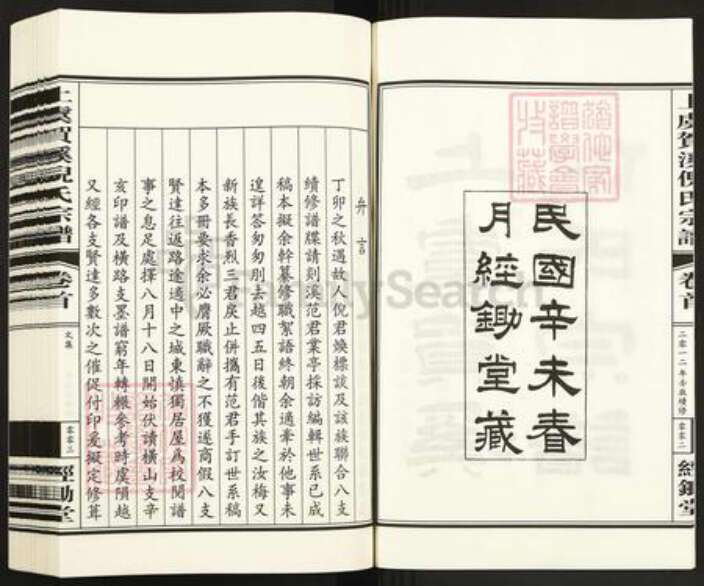 民國辛未春
月經鋤堂藏
上虞賀溪倪氏宗譜
卷首
二零一二年壬辰續修
經鋤堂
弁言
丁卯之秋遇故人倪君煥標談及該族聯合八支
續修譜牒請剡溪范君業亭採訪編輯世系已成
稿本擬余幹纂修職絮語終朝余適牽於他事未
遑詳答匆匆別去越四五日後偕其族之汝梅又
新族長香烈三君戾止併攜有范君手訂世系稿
本多冊要求余必膺厥職辭之不獲遂商假八支
賢達往返路途適中之城東慎獨居屋為校閱譜
事之息足處擇八月十八日開始伏讀橫山支辛
亥印譜及橫路支墨譜窮年轉輾參考時虞隕越
又經各支賢達多數次之催促付印爰擬定修葺
上虞賀溪倪氏宗譜
卷首
文集
經鋤堂
FamilySearch